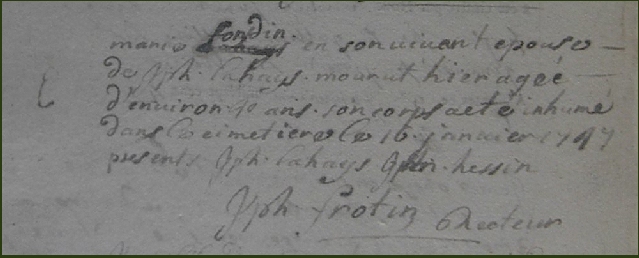 fondin
marie en son vivant epouse
de Jph. Cahays mourut hier ageé
d'environ ans son corps a eté inhumé
dans le cimetiere le 10 janvier 1747
presents Jph. Cahays Jph hessin
Jph frotin Recteur